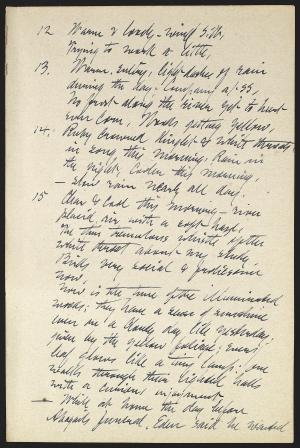 12 Warm & cloudy - wind S.W.
Trying to work a little,
13. Warm, Sultry, light dashes of rain
during the day.
No frost along the river yet to hurt
even corn, Woods getting yellow,
14. Ruby Crowned Kinglet & White throats
in song this morning. Rain in
the night, Cooler this morning,
- slow rain nearly all day.
15 Clear & Cool this morning - river
placid, air with a soft haze,
The thin tremulous whistle of the
white throat about my study
Birds very social & 
now.
Now is the time of the illuminated
woods; they have a sense of sunshine
even on a cloudy day like yesterday,
given by the yellow foliage; every
leaf glows like a tiny lamp; one
walks through their lighted halls
with a curious enjoyment.
- While at home the day before
funeral, Eden said he wanted